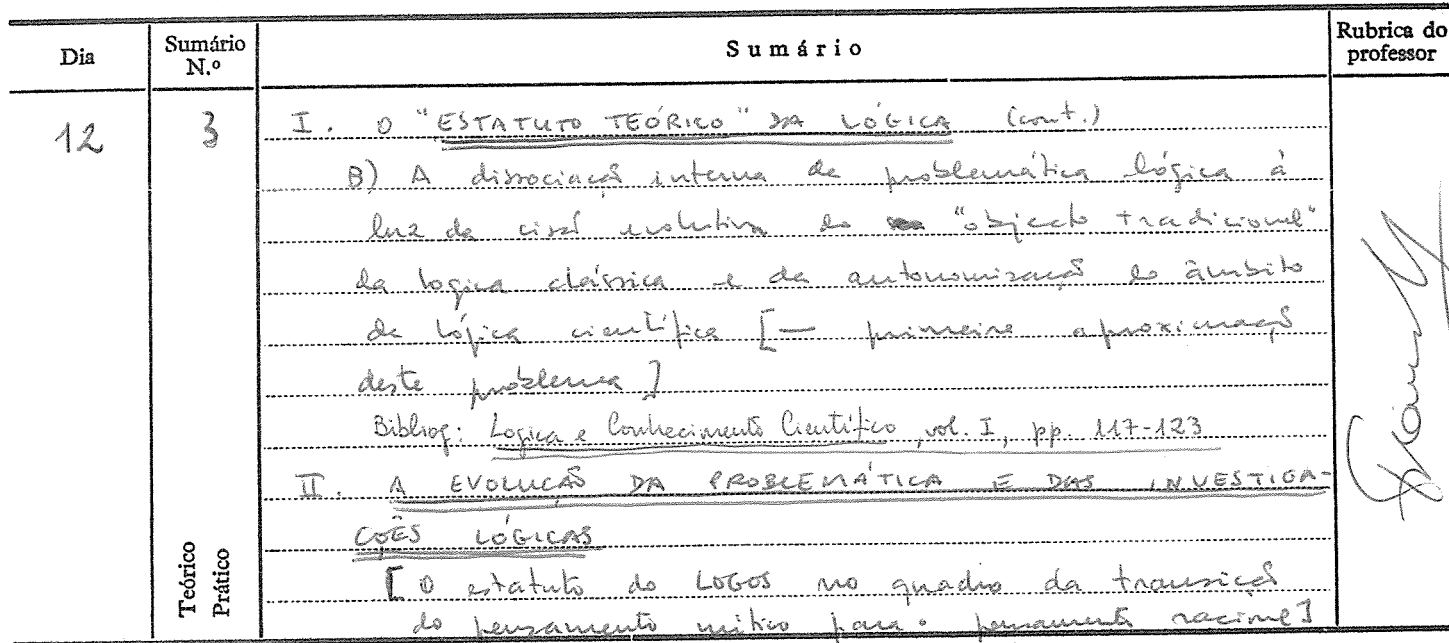 Dia
Sumário N.º
Sumário
Rubrica do professor
12
3
I. O "ESTATUTO TEÓRICO" DA LÓGICA (cont.)
B) A dissociação interna da problemática lógica à
luz da cisão evolutiva do "objecto tradicional"
da logica clássica e da autonomização do âmbito
da lógica científica [— primeira aproximação
deste problema]
Bibliog: Logica e Conhecimento Científico, vol. I, pp. 117-123
II. A EVOLUÇÃO DA PROBLEMÁTICA E DAS INVESTIGA-
ÇÕES LÓGICAS
[O estatuto do LOGOS no quadro da transição
do pensamento mítico para o pensamento racional]
Teórico
Prático